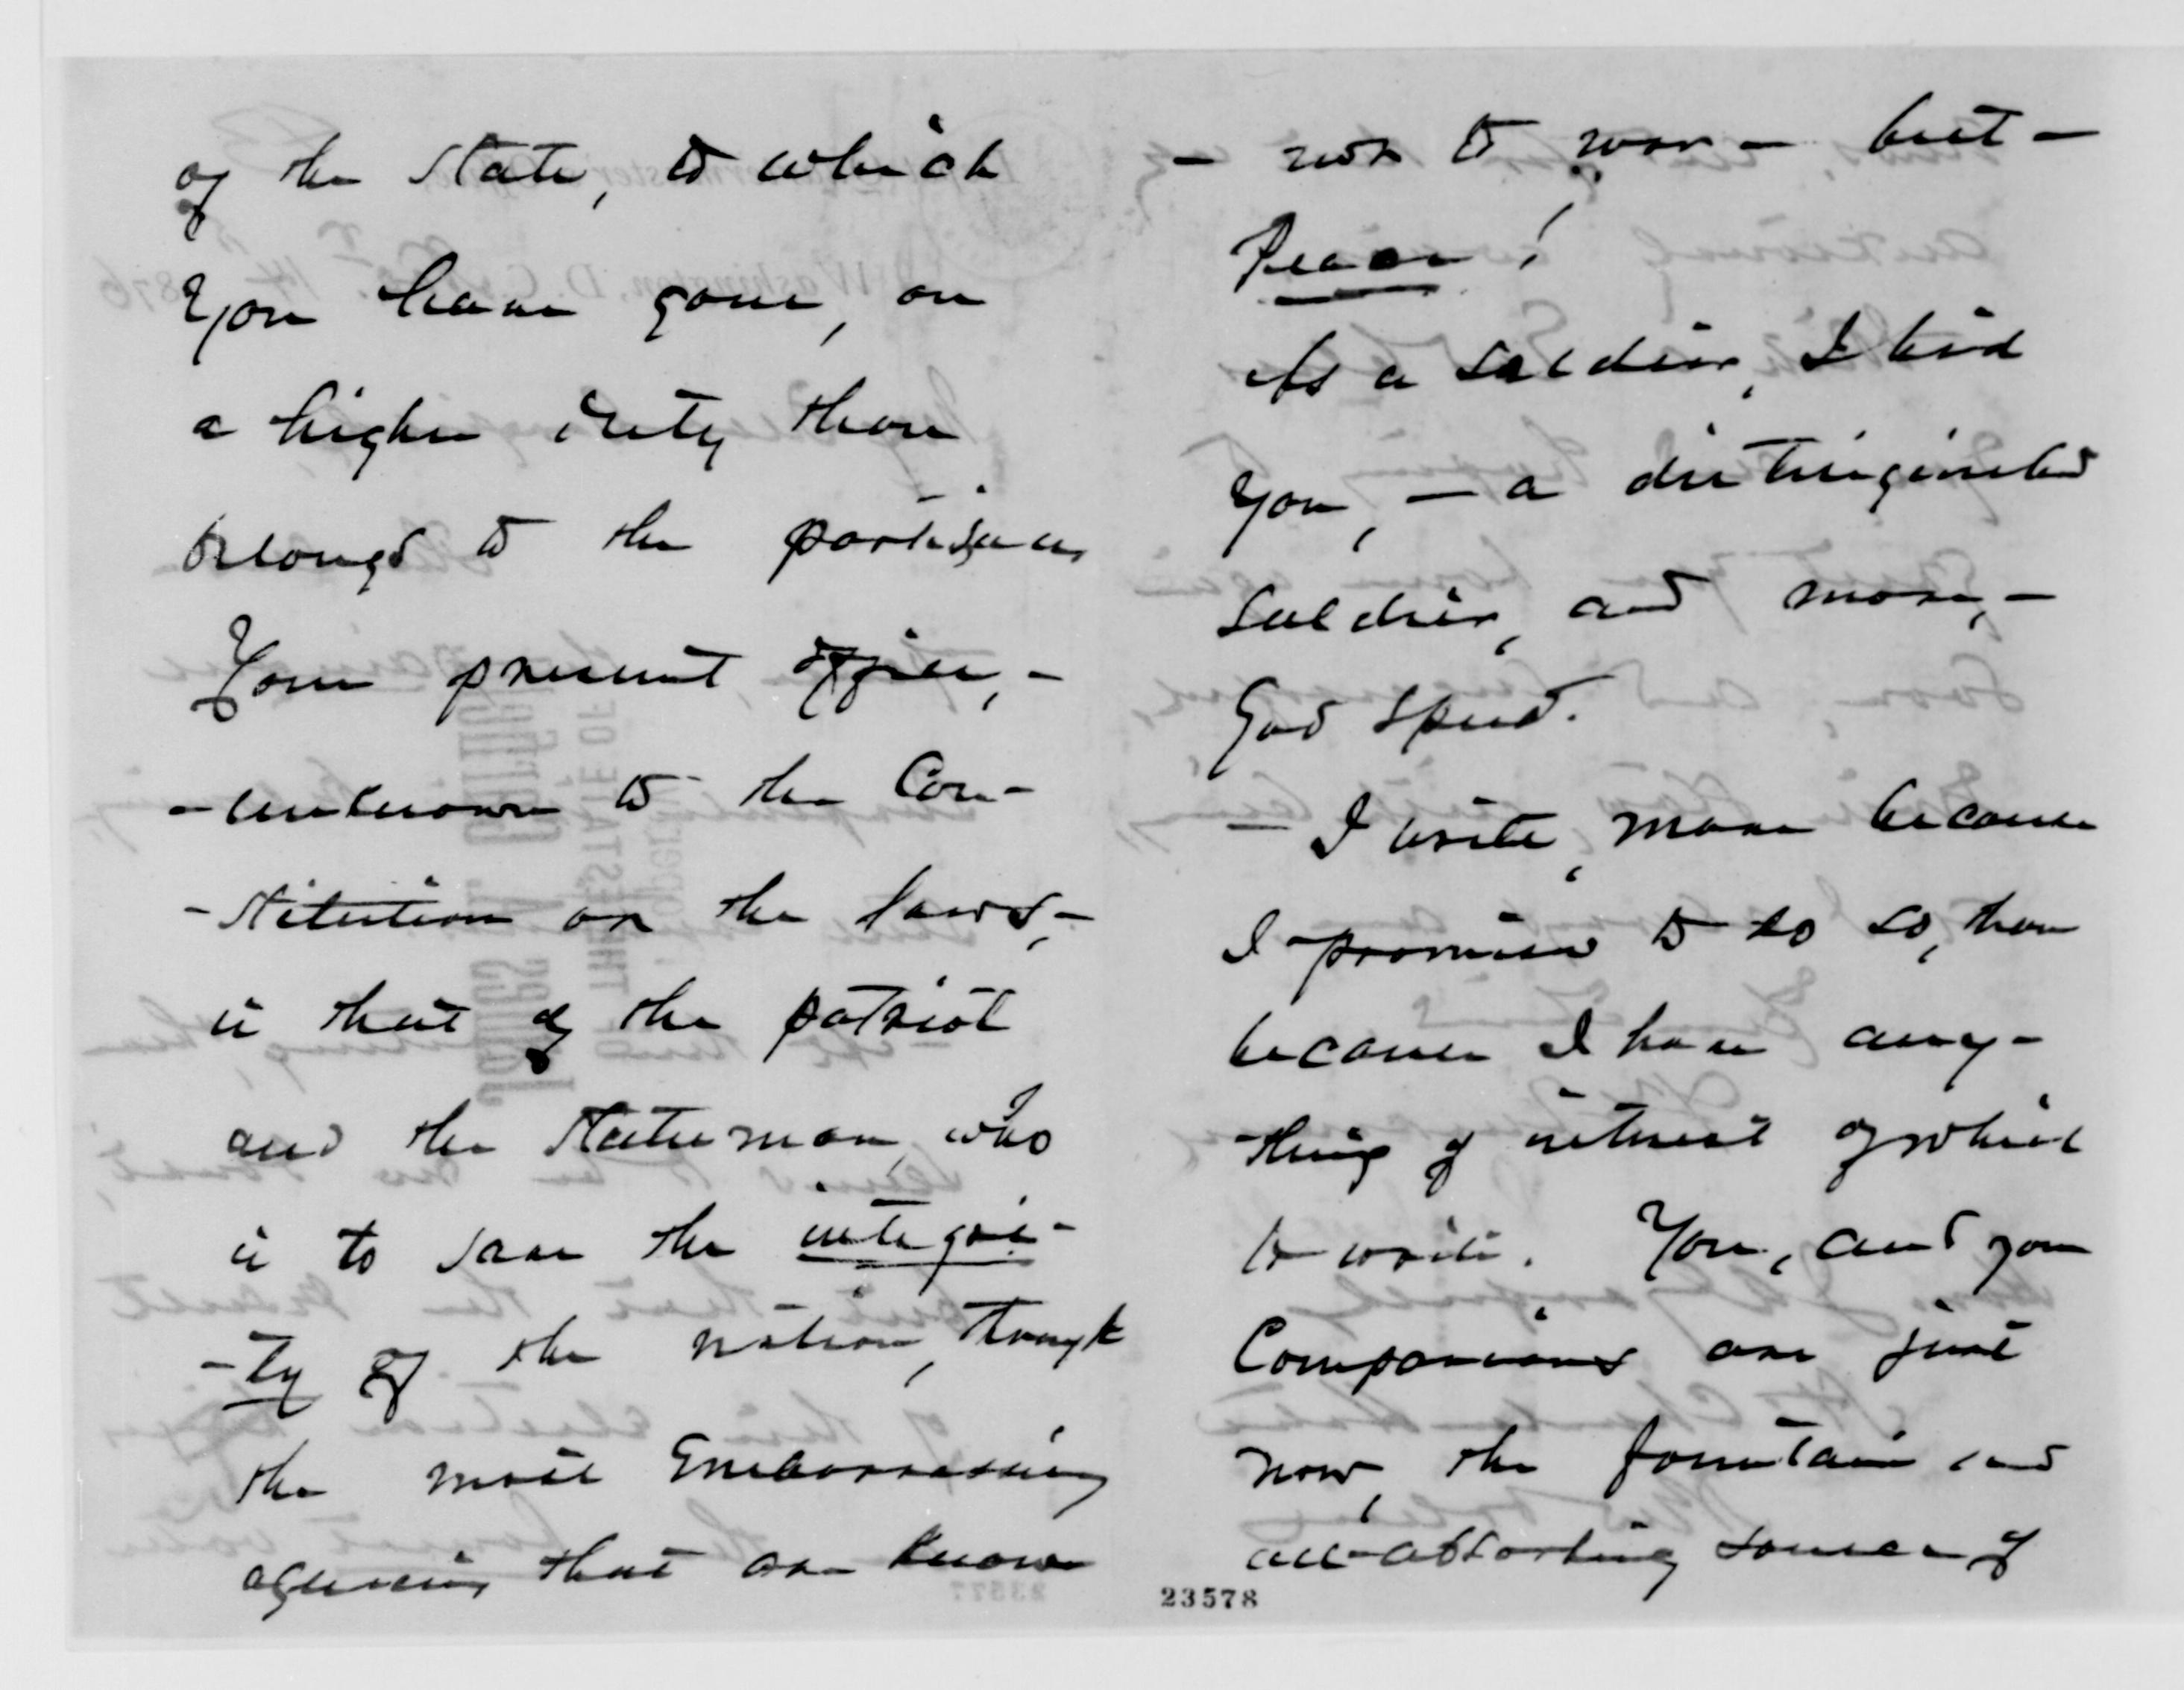 of the State, to which
you have gone, on
a higher duty than
belongs to the partisan,
Your present office, -
- unknown to the Con-
- stitution or the laws, -
is that of the patriot
and the statesman, who
is to save the integri-
- ty of the nation, though
the most embarrassing
agencies that are known
- not to war - but -
Peace!
As a soldier, I bid
you, - a distinguished
soldier, and more, -
God speed.
- I write, more because
I promised to do so, than
because I have any-
thing of interest of which
to write. You, and your
Companions are just
now, the fountain and
all-absorbing source of
23578